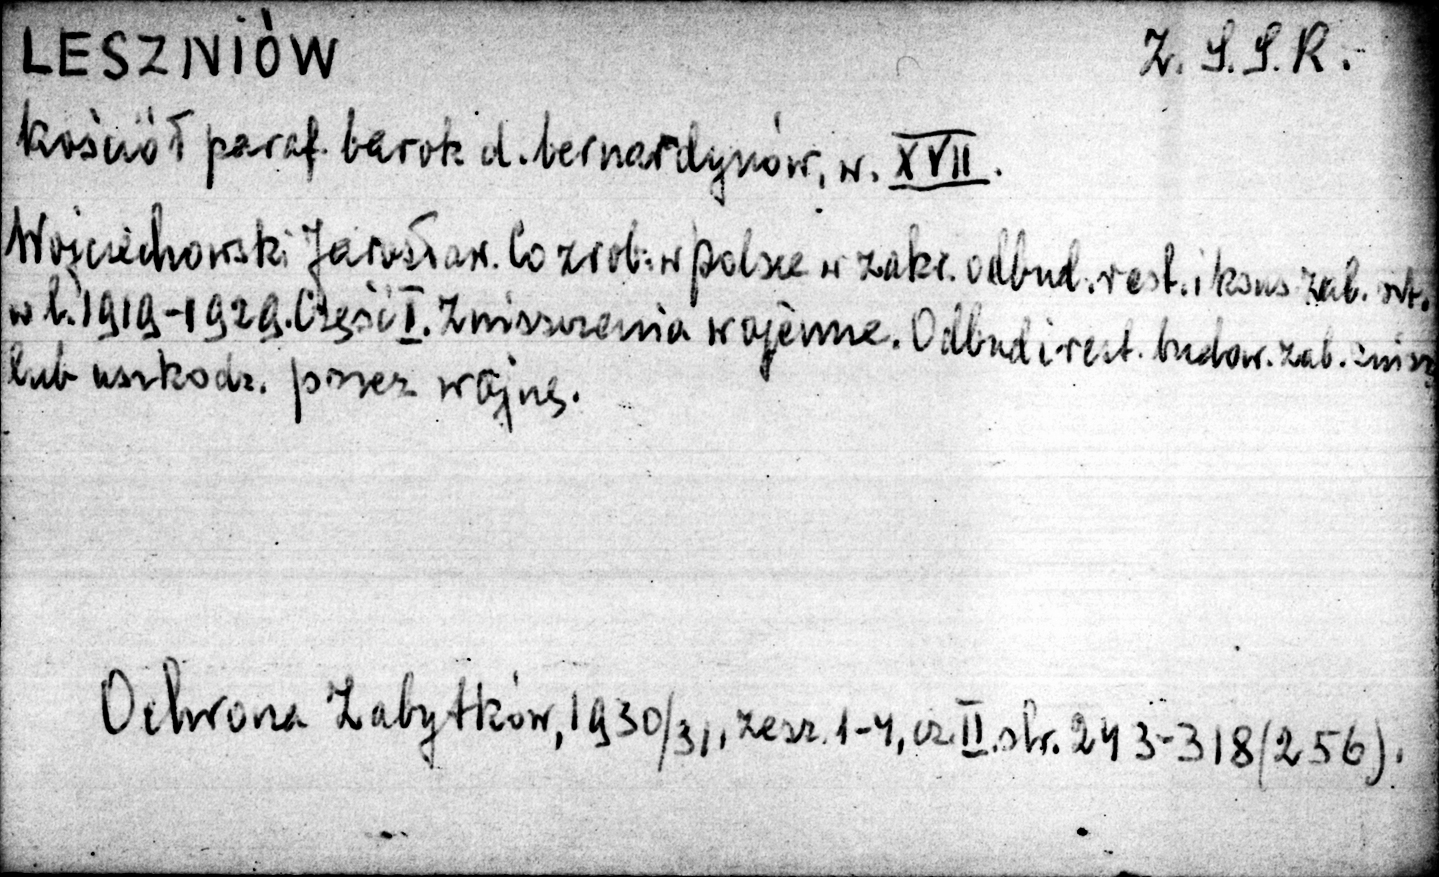 LESZNIÓW Z.S.S.R.
kościół paraf. barok d. bernardynów, w. XVII.
Wojciechowski Jarosław. Co zrob. w Polsce w zakr. odbud. rest. i kons zab. szt.
w l. 1919-1929. Część I. Zniszczenia wojenne. Odbud i rest. budow. zab. znisz
lub uszkodz. przez wojnę.
Ochrona Zabytków, 1930/31, zesz. 1-4, cz. II. str. 243-318 (256).